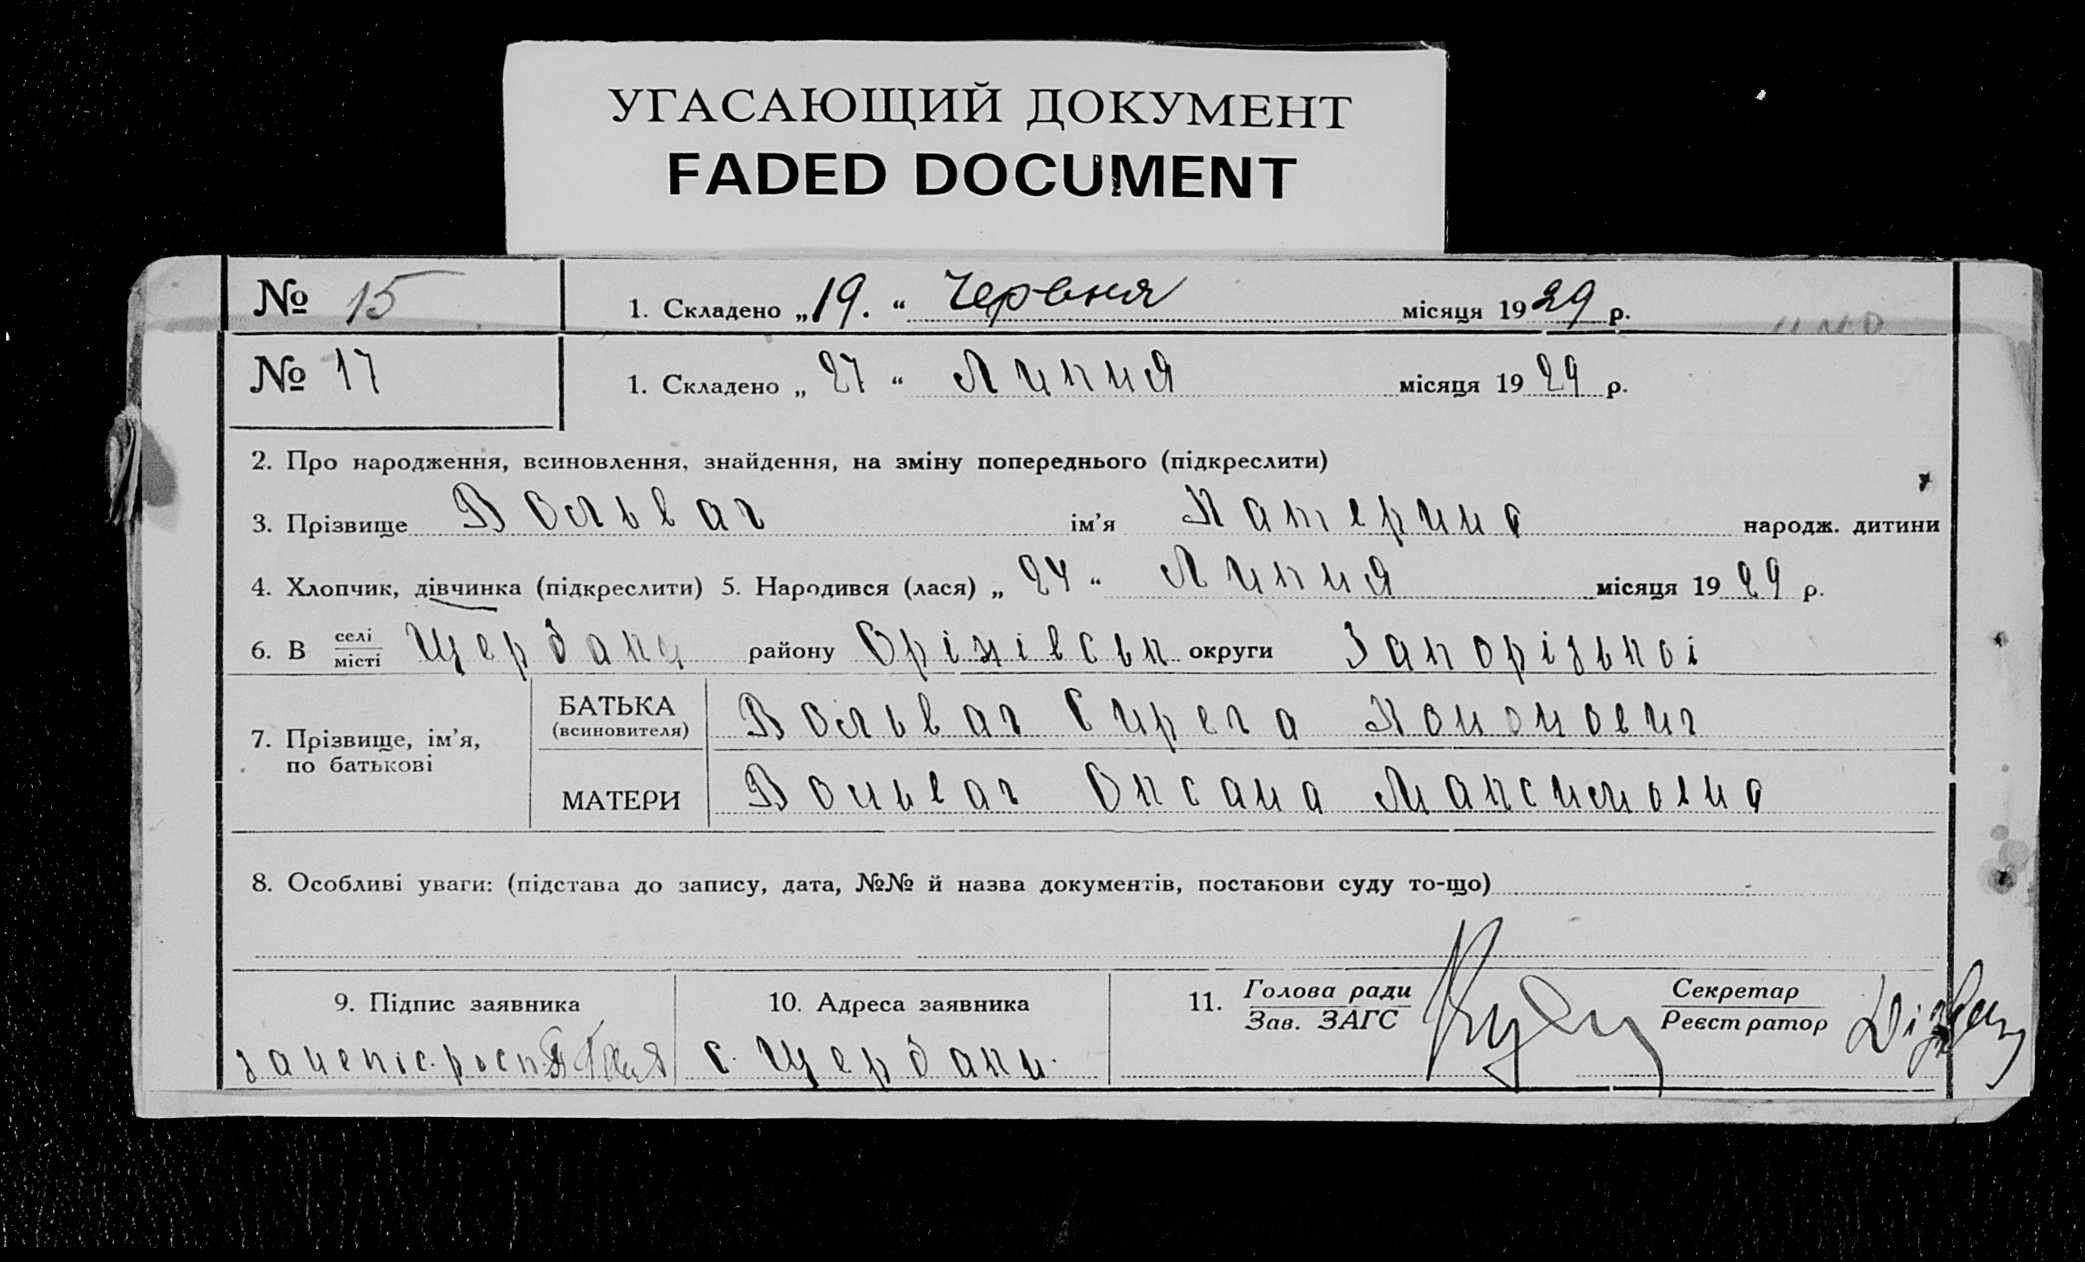 УГАСАЮЩИЙ ДОКУМЕНТ
FADED DOCUMENT
№ 15 1. Складено „19.“ Червня місяця 1929 р.
№ 17 1. Складено „27“ Липня місяця 1929 р.
2. Про народження, всиновлення, знайдення, на зміну попереднього (підкреслити)
3. Прізвище Вольвач ім’я Катерина народж. дитини
4. Хлопчик, дівчинка (підкреслити) 5. Народився (лася) „24“ Липня місяця 1929 р.
6. В селі/місті Щербаки району Оріхівськ округи Запорізької
7. Прізвище, ім’я, по батькові
БАТЬКА (всиновителя) Вольвач Сирега Кононович
МАТЕРИ Вольвач Оксана Максимовна
8. Особливі уваги: (підстава до запису, дата, №№ й назва документів, постанови суду то-що)
9. Підпис заявника 10. Адреса заявника 11. Голова ради/Зав. ЗАГС Секретар/Реєстратор
с. Щербаки.